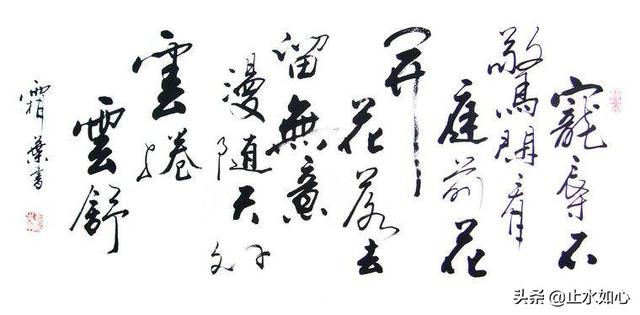 寵辱不
驚閒看
庭前花
開
花落去
留無意
漫隨天外
雲捲
雲舒
霜葉書
头条 @止水如心